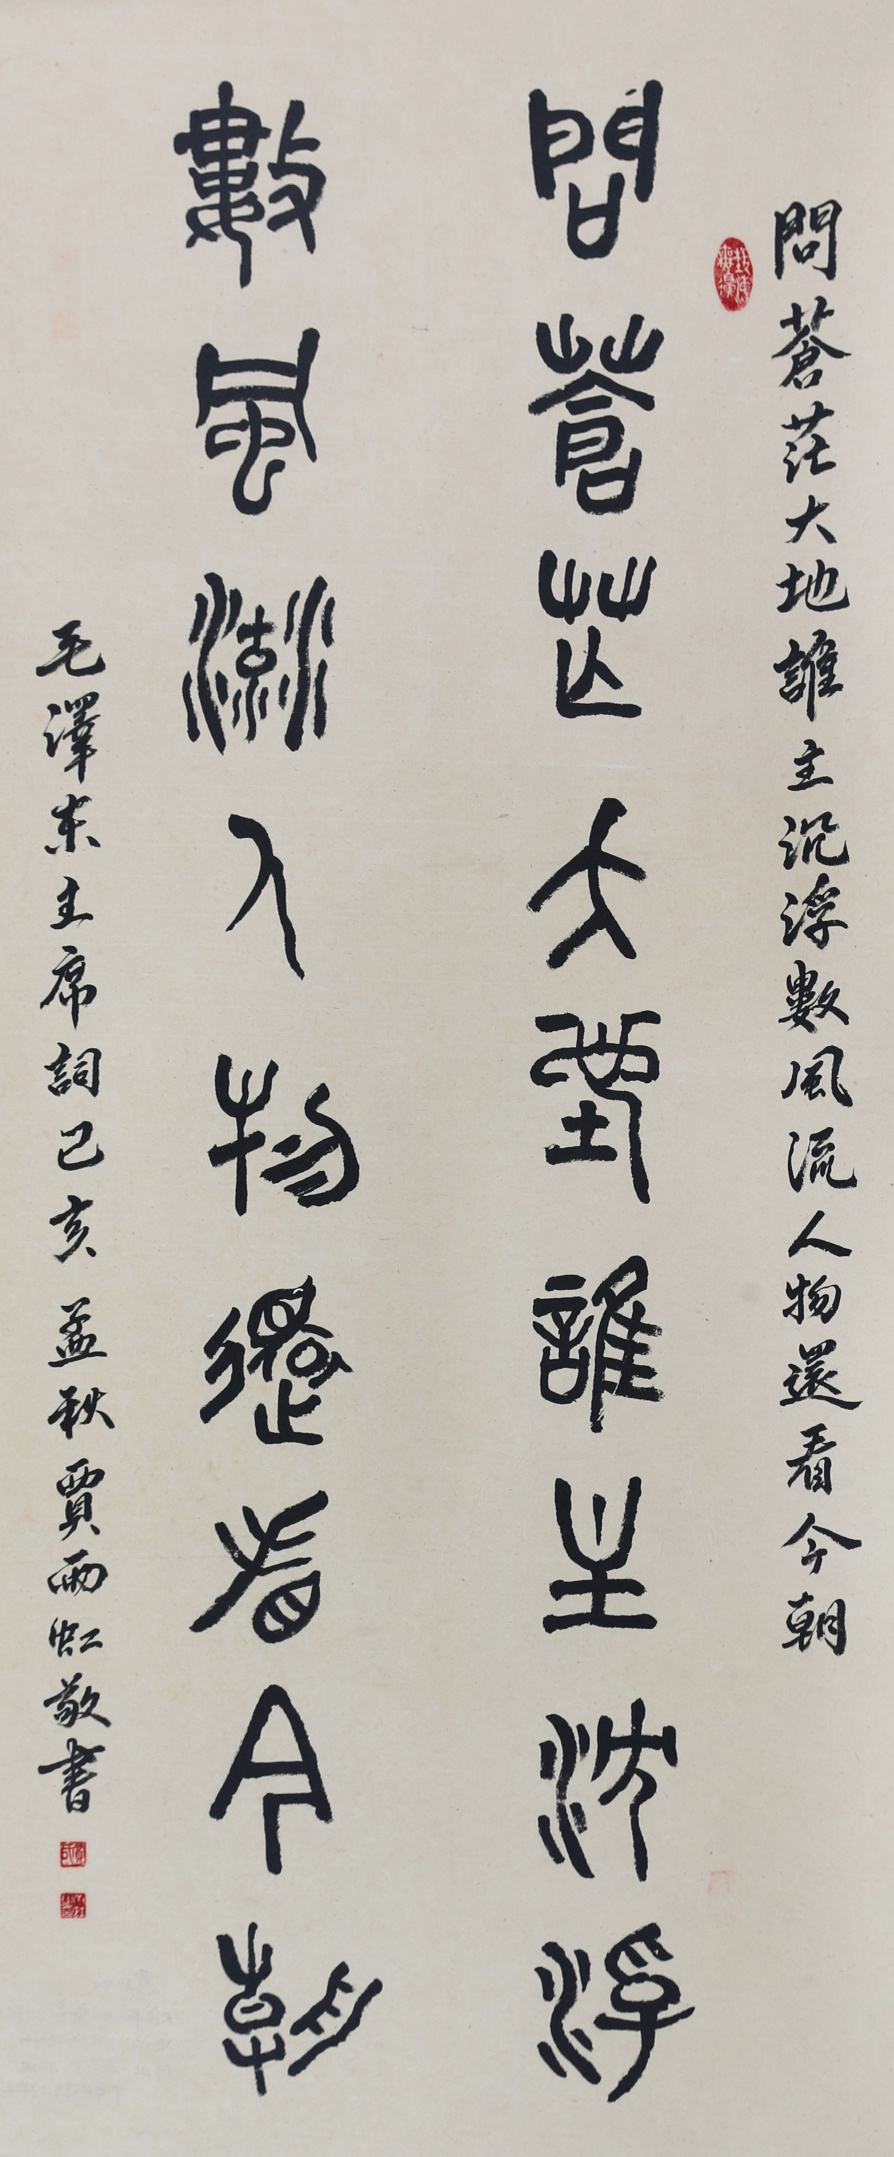 問蒼茫大地誰主沉浮數風流人物還看今朝
問蒼茫大地誰主沈浮
數風流人物還看今朝
毛澤東主席詞己亥孟秋賈雨虹敬書